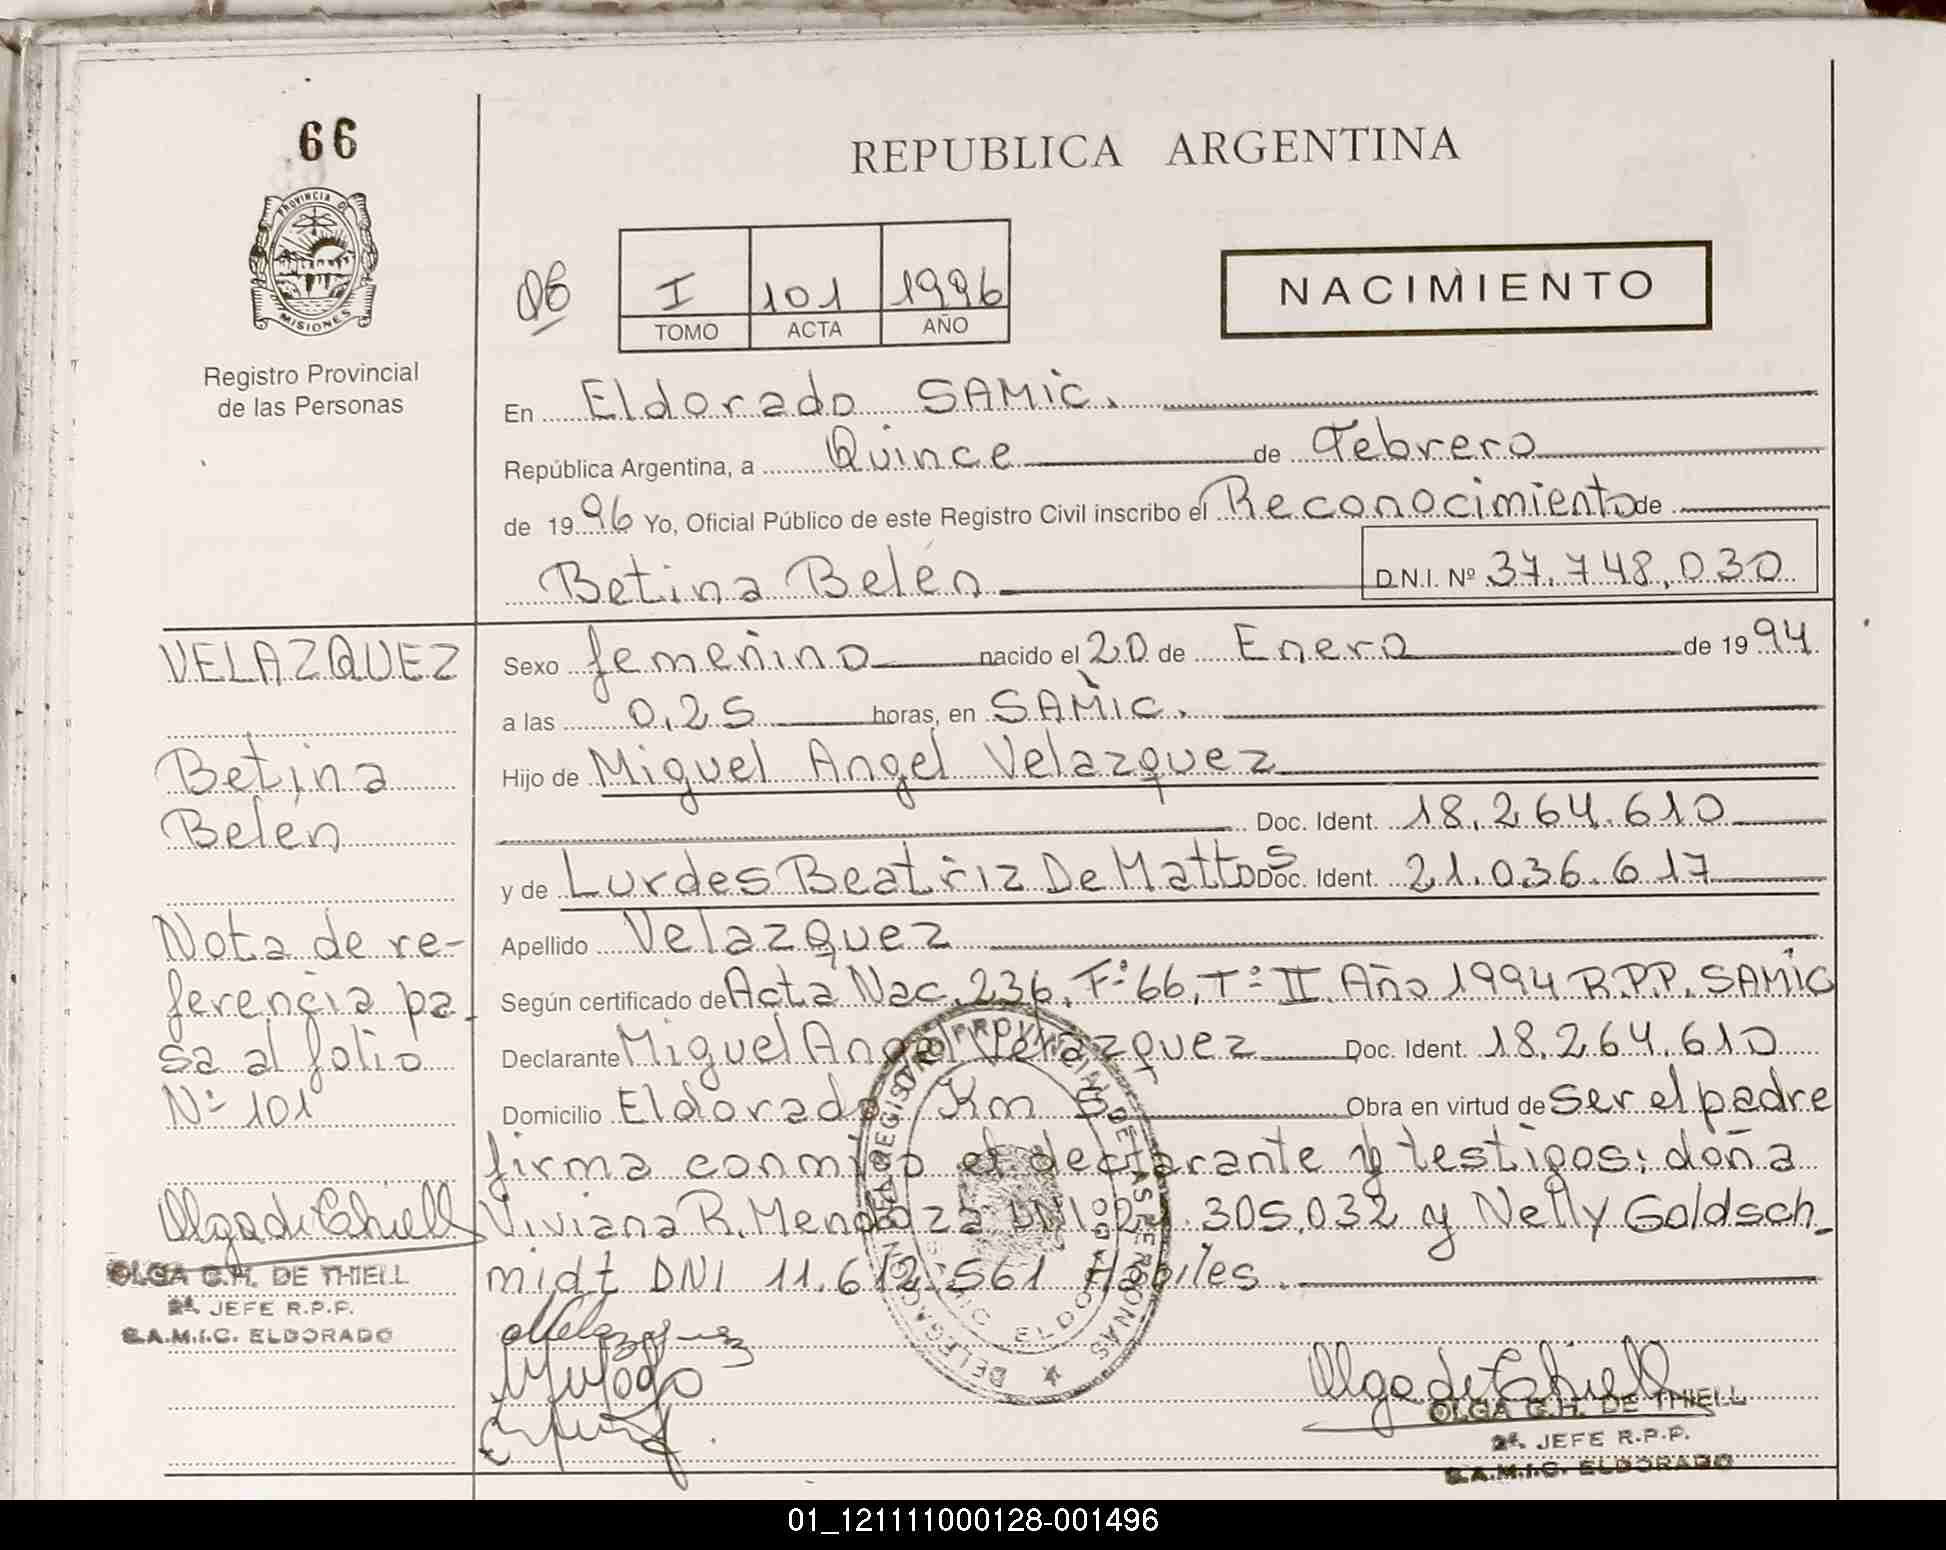 66
PROVINCIA DE
MISIONES
Registro Provincial
de las Personas
REPUBLICA ARGENTINA
I 101 1996
TOMO ACTA AÑO
NACIMIENTO
En Eldorado SAMIC.
República Argentina, a Quince de Febrero
de 1996 Yo, Oficial Público de este Registro Civil inscribo el Reconocimiento de
Betina Belén D.N.I. Nº 37.748.030
VELAZQUEZ
Betina
Belén
Nota de re-
ferencia pa-
sa al folio
Nº 101
Olga de Thiell
OLGA G.H. DE THIELL
2ª JEFE R.P.P.
S.A.M.I.C. ELDORADO
Sexo femenino nacido el 20 de Enero de 1994
a las 0,25 horas, en SAMIC.
Hijo de Miguel Angel Velazquez
Doc. Ident. 18.264.610
y de Lurdes Beatriz De Mattos Doc. Ident. 21.036.617
Apellido Velazquez
Según certificado de Acta Nac. 236, Fº 66, Tº II Año 1994 R.P.P. SAMIC
Declarante Miguel Angel Velazquez Doc. Ident. 18.264.610
Domicilio Eldorado Km Obra en virtud de Ser el padre
firma conmigo el declarante y testigos: doña
Viviana R. Mendoza DNI 305.032 y Nelly Goldsch-
midt DNI 11.612.561 Habiles.
Velazquez
Olga de Thiell
OLGA G.H. DE THIELL
2ª JEFE R.P.P.
S.A.M.I.C. ELDORADO
01_121111000128-001496